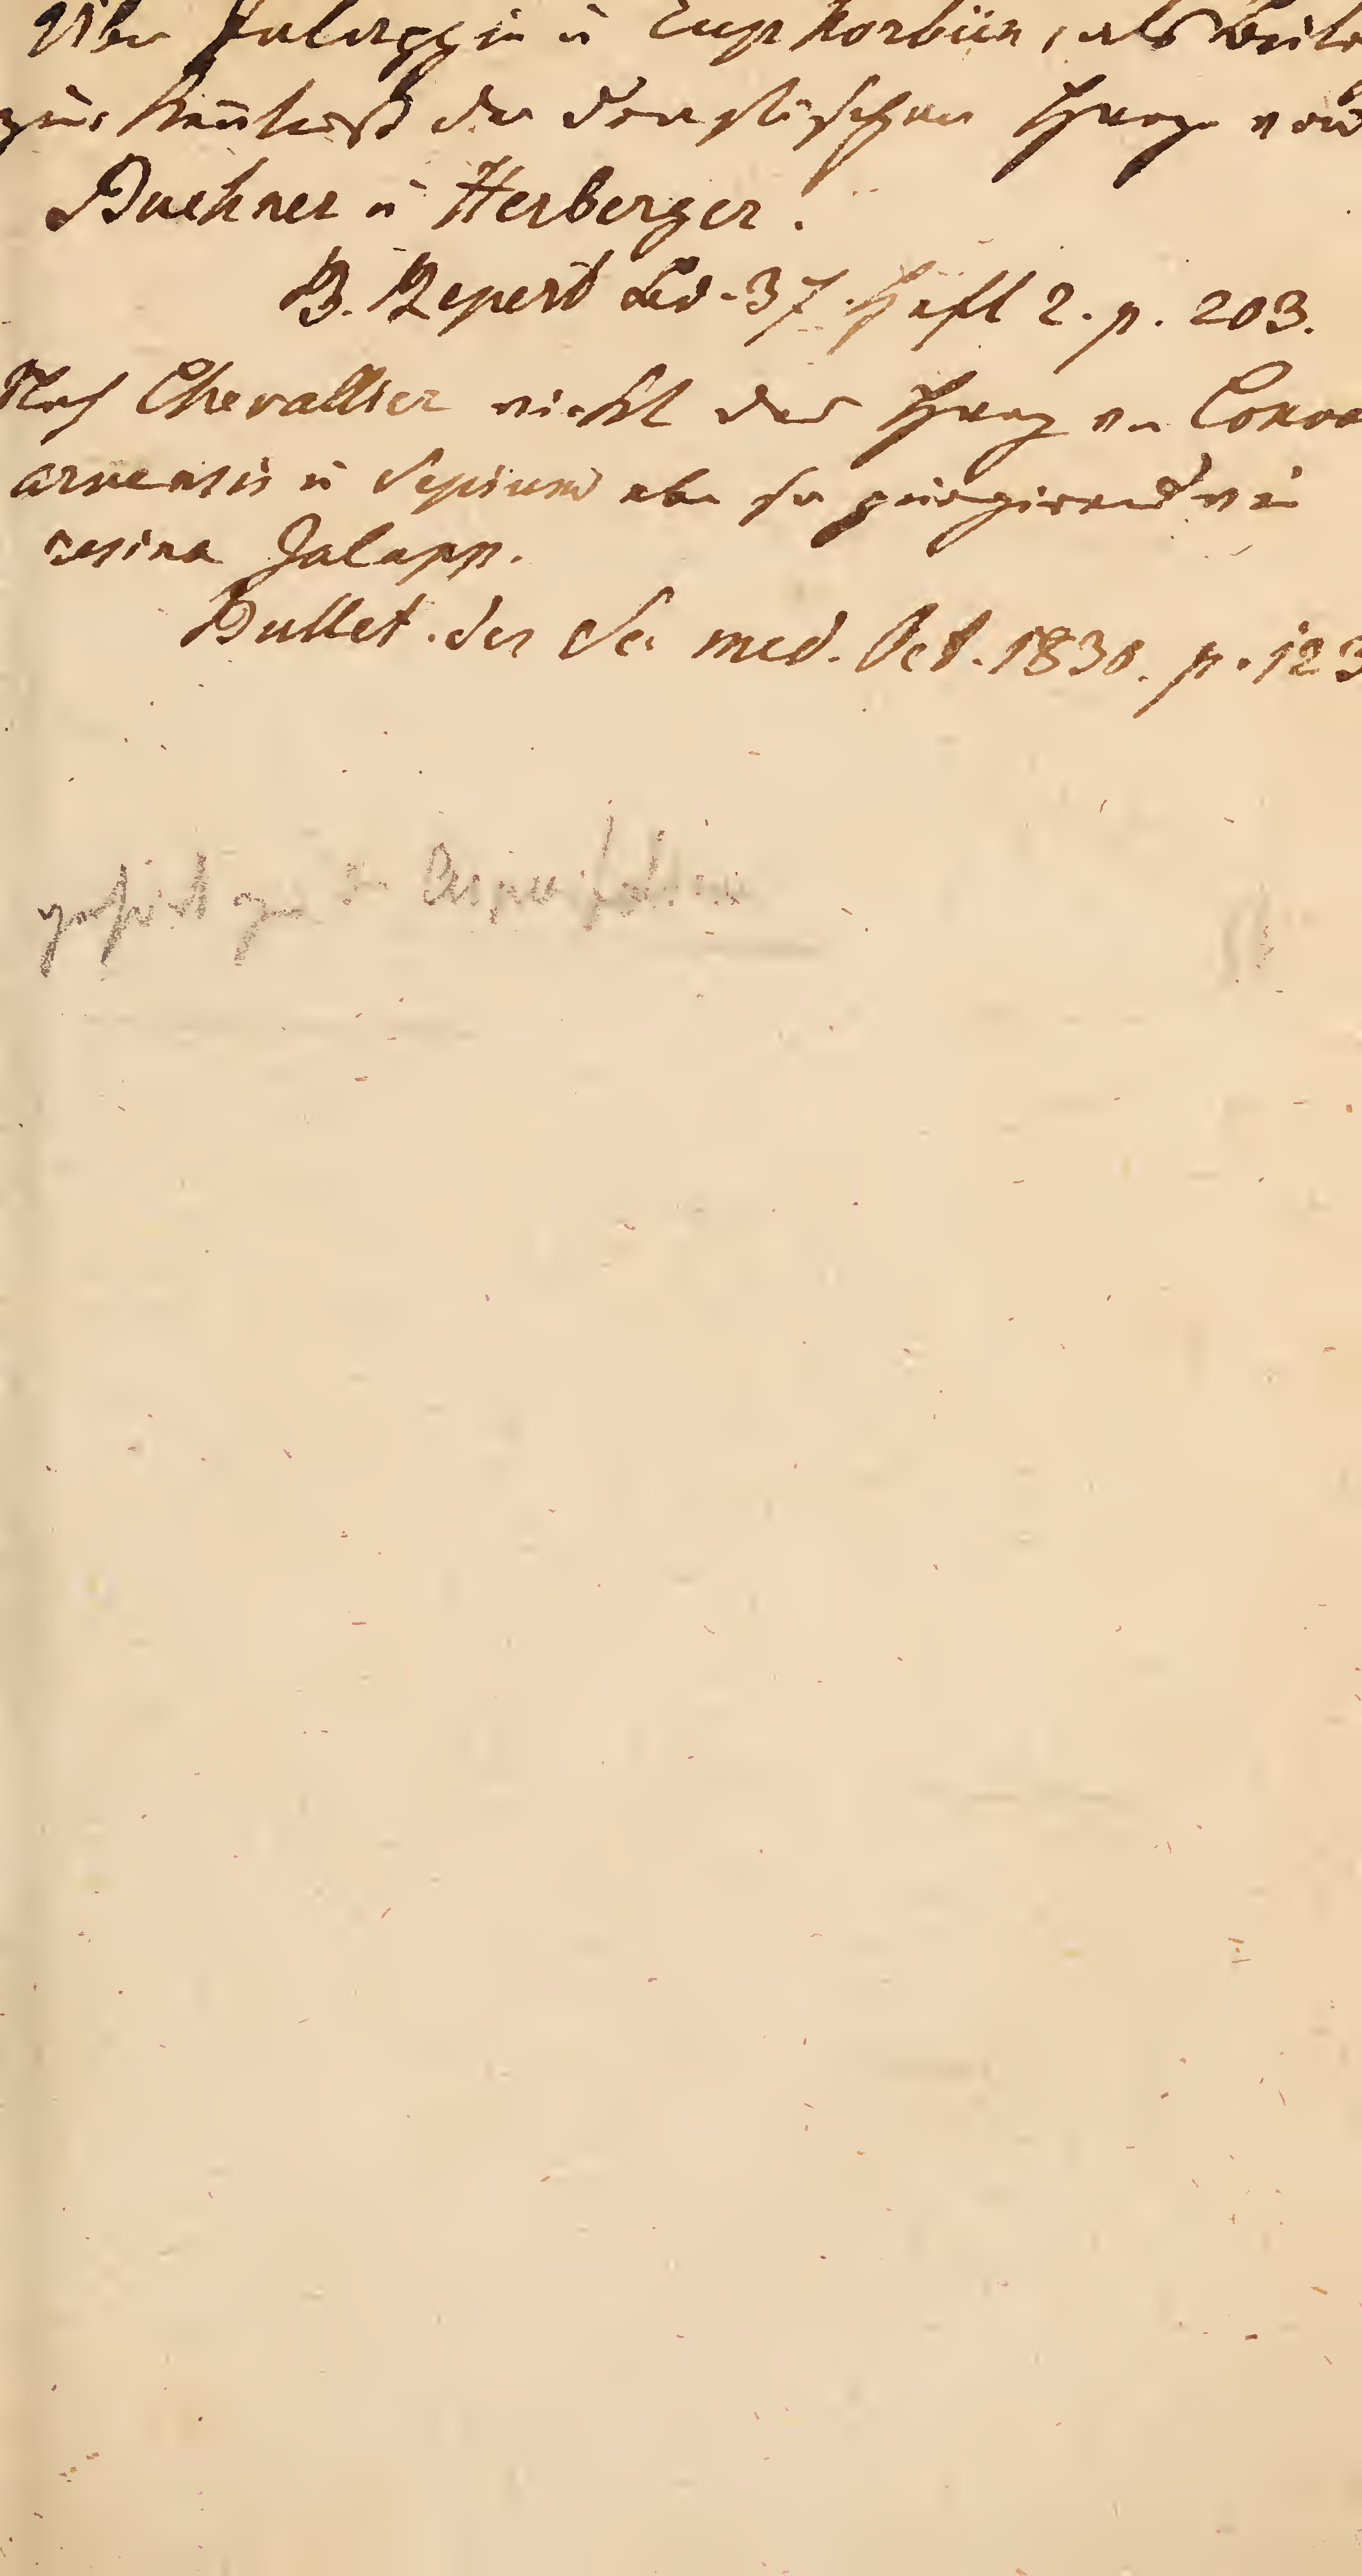 Über Jalappin u Euphorbiin, als Beitr
zur Kenntniß der drastischen Harze von
Buchner u Herberger.
B. Repert Bd. 37 Heft 2. p. 203.
Nach Chevallier wirkt das Harz von Convo
arvensis u Sepium eben so purgirend wie
resina Jalapp.
Bullet. des Sc. med. Oct. 1830. p. 123
gehört zu den